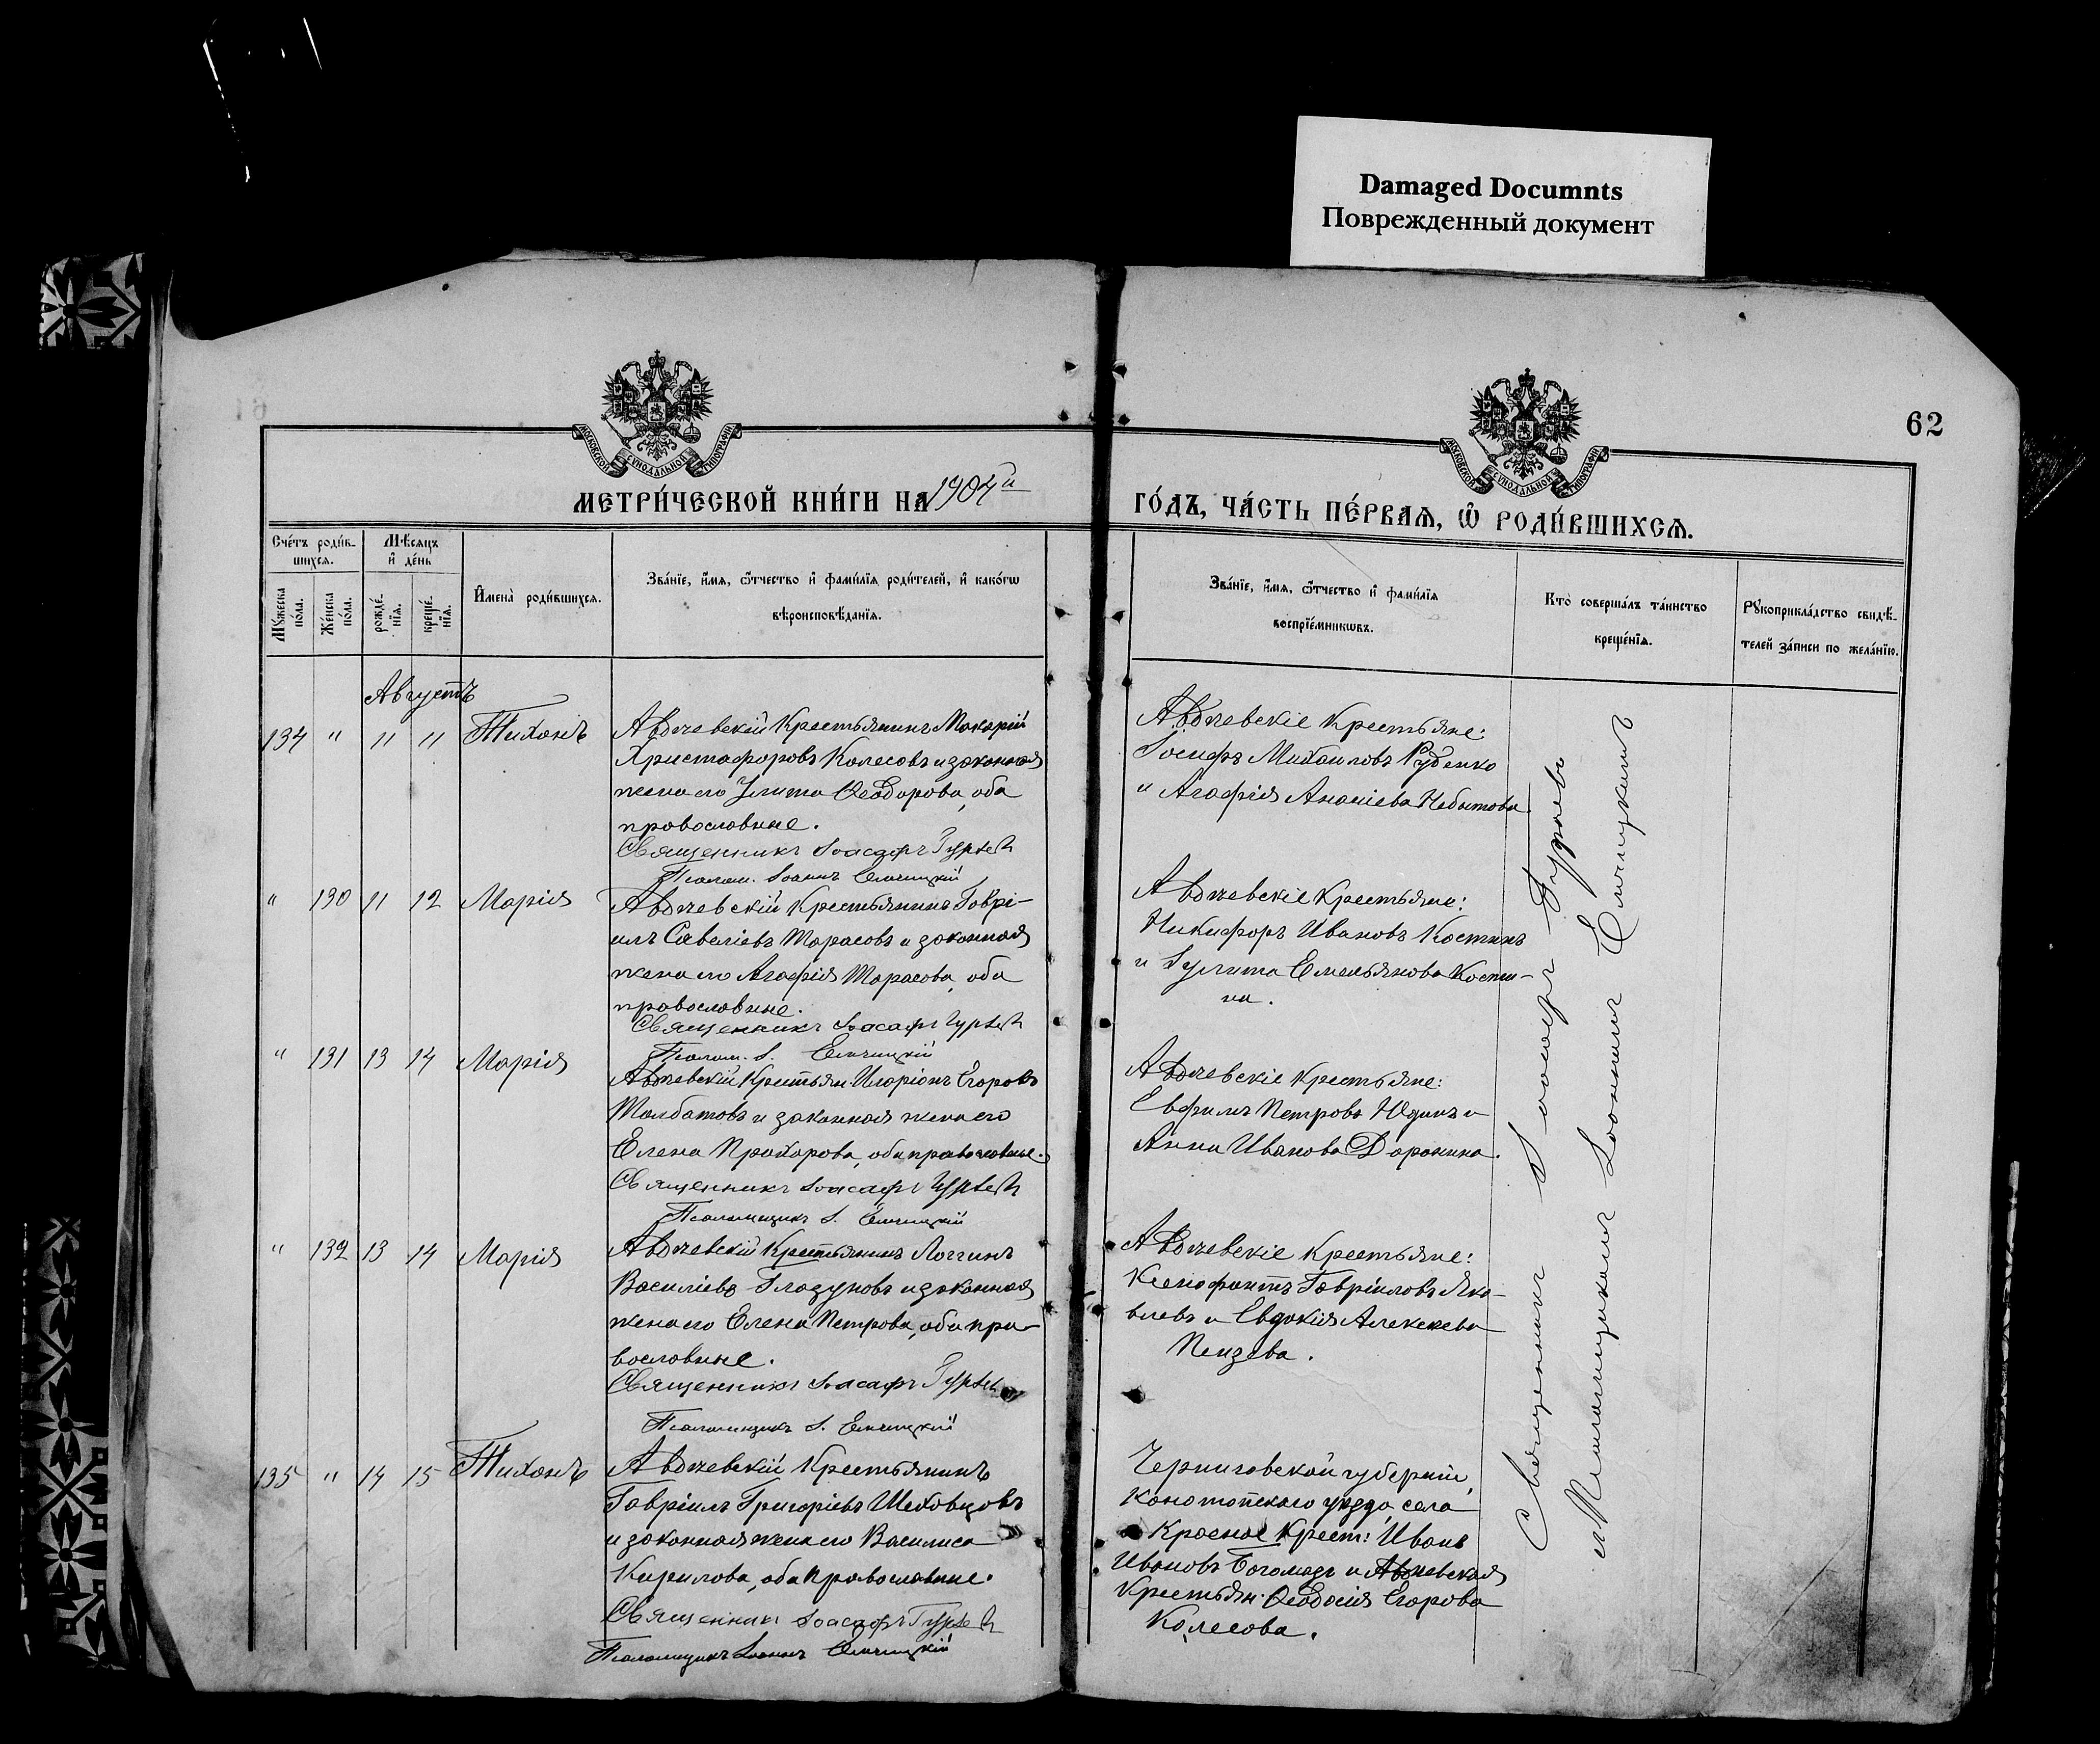 Damaged Documnts
Поврежденный документ
62
МОСКОВСКОЙ СѴНОДАЛЬНОЙ ТИПОГРАФІИ
МОСКОВСКОЙ СѴНОДАЛЬНОЙ ТИПОГРАФІИ
МЕТРИ́ЧЕСКОЙ КНИ́ГИ НА 1904й
ГО́ДЪ, ЧА́СТЬ ПЕ́РВАѦ, Ѡ҆ РОДИ́ВШИХСѦ.
Сче́тъ роди́в-
шихсѧ.
Мѣ́сяцъ
и҆ де́нь
Мꙋ́жеска по́ла.
Же́нска по́ла.
рожде́-
нїѧ.
креще́-
нїѧ.
И҆мена̀ роди́вшихсѧ.
Зва́нїе, и҆́мѧ, ѻ҆́тчество и҆ фами́лїѧ роди́телей, и҆ како́гѡ
вѣроисповѣ́данїѧ.
Зва́нїе, и҆́мѧ, ѻ҆́тчество и҆ фами́лїѧ
воспрїе́мникѡвъ.
Кто̀ соверша́лъ та́инство
креще́нїѧ.
Рꙋкоприкла́дство свидѣ́-
телей за́писи по жела́нїю.
Августъ
134 " 11 11 Тихонъ
Авдчевскій Крестьянинъ Макарій
Христофоровъ Колесовъ и законная
жена его Улита Ѳеодорова, оба
православные.
Священникъ Іоасафъ Гурьевъ
Псалом. Іоаннъ Ельчицкій
Авдчевскіе Крестьяне:
Іосифъ Михаиловъ Руденко
и Агафія Ананіева Небытова
" 130 11 12 Марія
Авдчевскій Крестьянинъ Гаврі-
илъ Савеліевъ Тарасовъ и законная
жена его Агафія Тарасова, оба
православные.
Священникъ Іоасафъ Гурьевъ
Псалом. І. Ельчицкій
Авдчевскіе Крестьяне:
Никифоръ Ивановъ Костинъ
и Іулита Емельянова Кости-
на.
" 131 13 14 Марія
Авдчевскій Крестьян. Иларіонъ Егоровъ
Толбатовъ и законная жена его
Елена Прохорова, оба православные.
Священникъ Іоасафъ Гурьевъ
Псаломщикъ І. Ельчицкій
Авдчевскіе Крестьяне:
Евфимъ Петровъ Юдинъ и
Анна Иванова Доронина.
" 132 13 14 Марія
Авдчевскій Крестьянинъ Логгинъ
Василіевъ Глазуновъ и законная
жена его Елена Петрова, оба пра-
вославные.
Священникъ Іоасафъ Гурьевъ
Псаломщикъ І. Ельчицкій
Авдчевскіе Крестьяне:
Ксенофонтъ Гавріиловъ Яко-
влевъ и Евдокія Алексеева
Пензева.
135 " 14 15 Тихонъ
Авдчевскій Крестьянинъ
Гавріилъ Григоріевъ Шеховцовъ
и законная жена его Василиса
Кирилова, оба православные.
Священникъ Іоасафъ Гурьевъ
Псаломщикъ Іоаннъ Ельчицкій
Черниговской губерніи,
Конотопского уезда, села
Красное Крест: Иванъ
Ивановъ Богомазъ и Авдчевская
Крестьян. Ѳеодосія Егорова
Колесова.
Священникъ Іоасафъ Гурьевъ
и Псаломщикъ Іоаннъ Ельчицкій